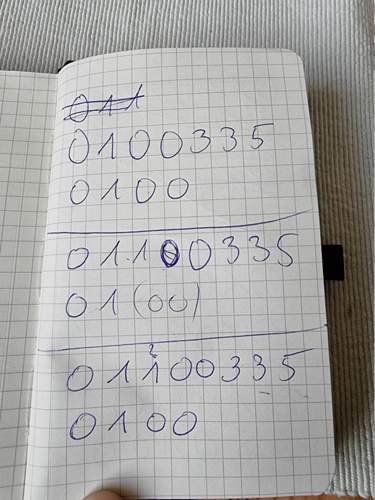 011
0100335
0100
01.100335
01(00)
2
01100335
0100